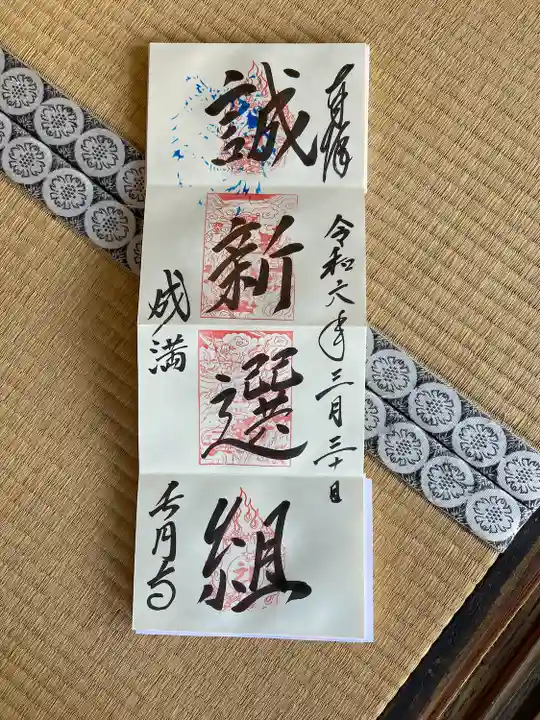 奉拝
令和六年三月三十日
誠
新
選
組
成満
壬月寺